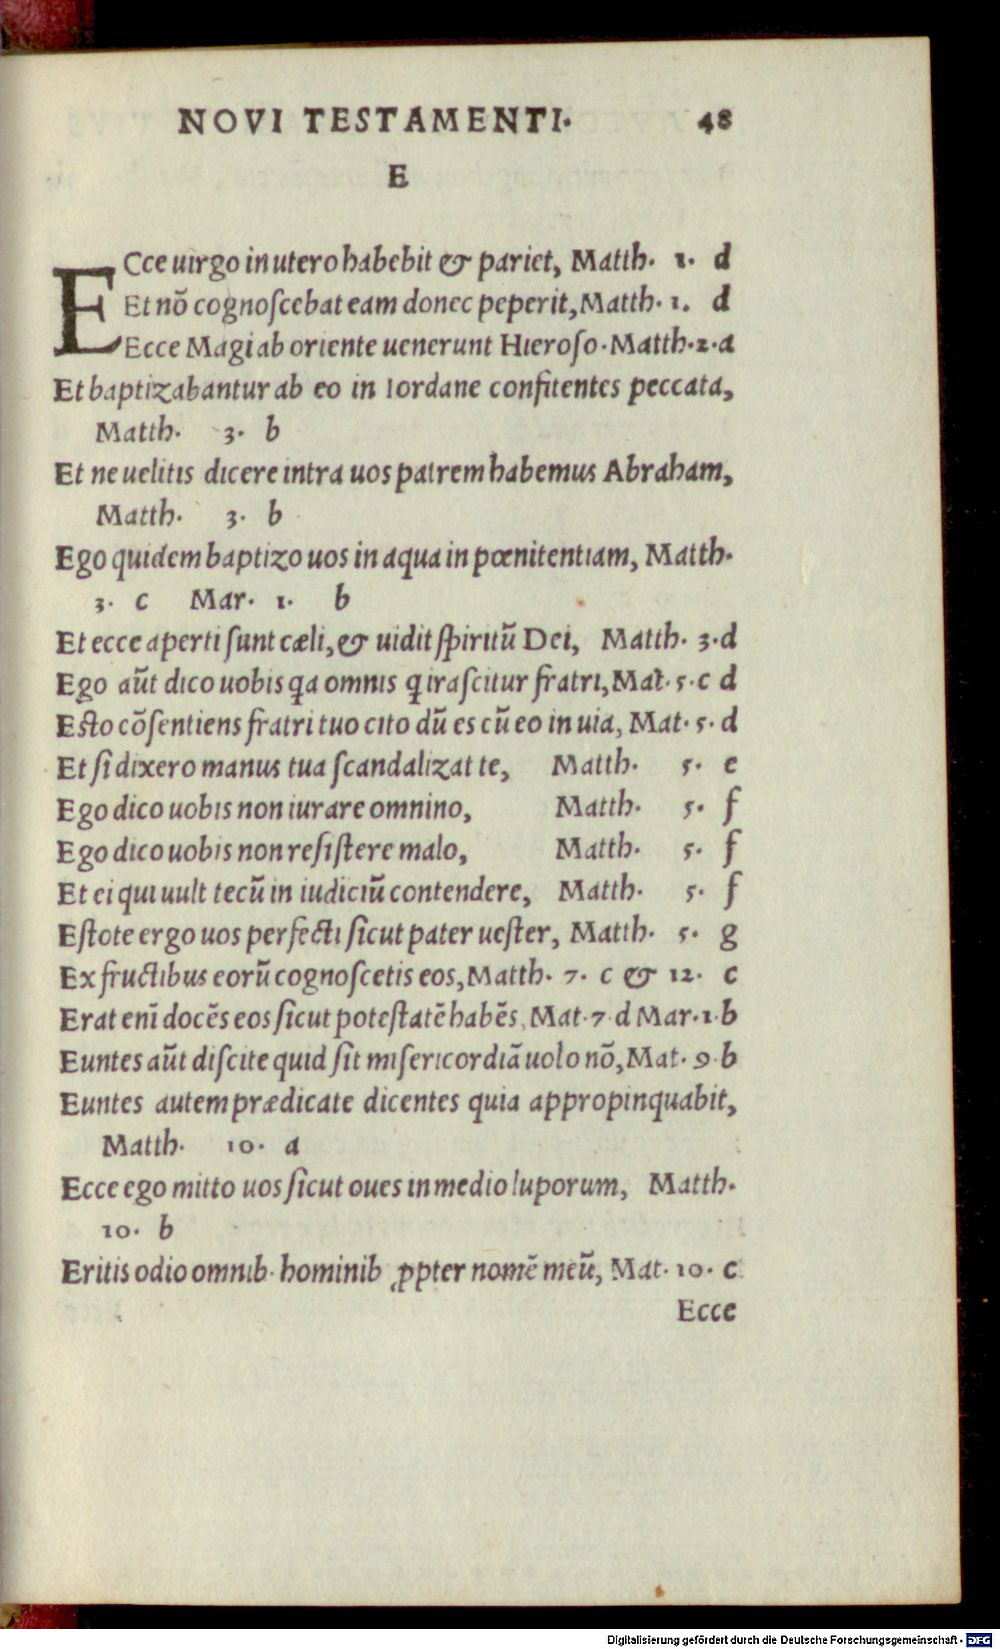 NOVI TESTAMENTI. 48
E
ECce uirgo in utero habebit & pariet, Matth. 1. d
Et nō cognoſcebat eam donec peperit, Matth. 1. d
Ecce Magi ab oriente uenerunt Hieroſo. Matth. 2. a
Et baptizabantur ab eo in Iordane confitentes peccata,
Matth. 3. b
Et ne uelitis dicere intra uos patrem habemus Abraham,
Matth. 3. b
Ego quidem baptizo uos in aqua in pœnitentiam, Matth.
3. c Mar. 1. b
Et ecce aperti ſunt cæli, & uidit ſpiritū Dei, Matth. 3. d
Ego aūt dico uobis qa omnis q iraſcitur fratri, Mat. 5. c d
Eſto cōſentiens fratri tuo cito dū es cū eo in uia, Mat. 5. d
Et ſi dixero manus tua ſcandalizat te, Matth. 5. e
Ego dico uobis non iurare omnino, Matth. 5. f
Ego dico uobis non reſiſtere malo, Matth. 5. f
Et ei qui uult tecū in iudiciū contendere, Matth. 5. f
Eſtote ergo uos perfecti ſicut pater ueſter, Matth. 5. g
Ex fructibus eorū cognoſcetis eos, Matth. 7. c & 12. c
Erat enī docēs eos ſicut poteſtatē habēs, Mat. 7. d Mar. 1. b
Euntes aūt diſcite quid ſit miſericordiā uolo nō, Mat. 9. b
Euntes autem prædicate dicentes quia appropinquabit,
Matth. 10. a
Ecce ego mitto uos ſicut oues in medio luporum, Matth.
10. b
Eritis odio omnib. hominib ꝓpter nomē meū, Mat. 10. c
Ecce
Digitalisierung gefördert durch die Deutsche Forschungsgemeinschaft - DFG